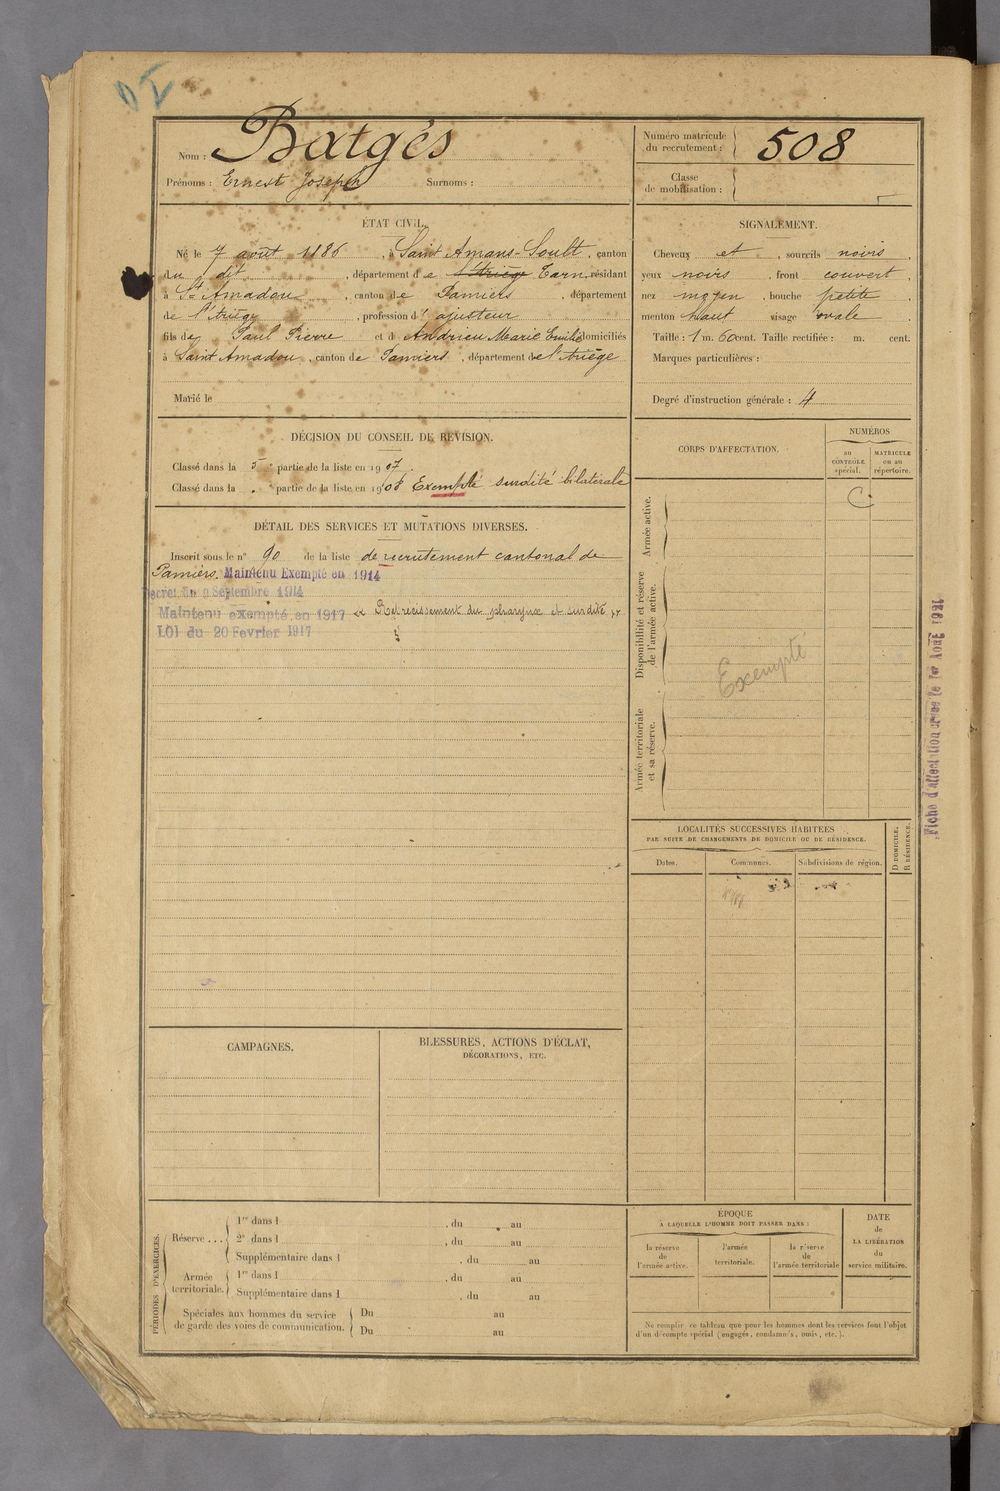 Nom : Batgés
Prénoms : Ernest Joseph Surnoms :
Numéro matricule
du recrutement : 508
Classe
de mobilisation :
ÉTAT CIVIL.
Né le 7 août 1886, à Saint Amans-Soult, canton
du dit, département de l'Ariège Tarn, résidant
à St Amadou, canton de Pamiers, département
de l'Ariège, profession d'ajusteur
fils de Paul Pierre et d'Andrieu Marie Emilie domiciliés
à Saint Amadou, canton de Pamiers, département de l'Ariège
Marié le
SIGNALEMENT.
Cheveux et, sourcils noirs,
yeux noirs, front couvert,
nez moyen, bouche petite,
menton haut visage ovale
Taille : 1 m. 60 cent. Taille rectifiée : m. cent.
Marques particulières :
Degré d'instruction générale : 4
DÉCISION DU CONSEIL DE RÉVISION.
Classé dans la 5e partie de la liste en 1907.
Classé dans la " e partie de la liste en 1908 Exempté surdité bilatérale
DÉTAIL DES SERVICES ET MUTATIONS DIVERSES.
Inscrit sous le n° 90 de la liste de recrutement cantonal de
Pamiers. Maintenu Exempté en 1914
Décret du 9 Septembre 1914
Maintenu exempté en 1917 « Rétrécissement du pharynx et surdité »
LOI du 20 Fevrier 1917
CORPS D'AFFECTATION.
NUMÉROS
AU
CONTRÔLE
spécial.
MATRICULE
ou au
répertoire.
C
Armée active.
Disponibilité et réserve
de l'armée active.
Exempté
Armée territoriale
et sa réserve.
Fiche d'affectation créée le 1er Août 1921
LOCALITÉS SUCCESSIVES HABITÉES
PAR SUITE DE CHANGEMENTS DE DOMICILE OU DE RÉSIDENCE.
Dates.
Communes.
Subdivisions de région.
D DOMICILE.
R RÉSIDENCE.
CAMPAGNES.
BLESSURES, ACTIONS D'ÉCLAT,
DÉCORATIONS, ETC.
PÉRIODES D'EXERCICES.
Réserve ...
1re dans l , du au
2e dans l , du au
Supplémentaire dans l , du au
Armée
territoriale.
1re dans l , du au
Supplémentaire dans l , du au
Spéciales aux hommes du service
de garde des voies de communication.
Du au
Du au
ÉPOQUE
À LAQUELLE L'HOMME DOIT PASSER DANS :
la réserve
de
l'armée active.
l'armée
territoriale.
la réserve
de
l'armée territoriale
DATE
de
LA LIBÉRATION
du
service militaire.
Ne remplir ce tableau que pour les hommes dont les services font l'objet
d'un décompte spécial (engagés, condamnés, omis, etc.).